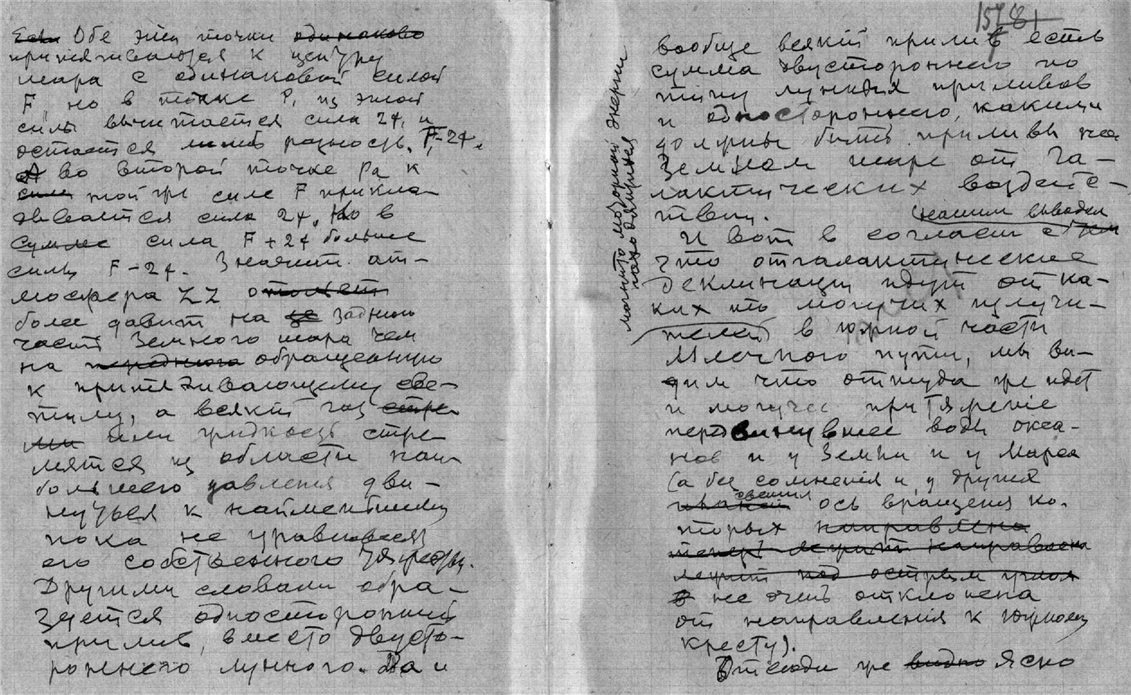 Обе эти точки одинаково
притягиваются к центру
шара с одинаковой силой
F, но в точке P, из этой
силы вычитается сила 2f, и
остается лишь разность F-2f.
А во второй точке Pa к
той же силе F прикла-
дывается сила 2f. Но в
сумме сила F+2f больше
силы F-2f. Значит ат-
мосфера ZZ
более давит на заднюю
часть Земного шара чем
на переднюю обращенную
к притягивающему све-
тилу, а всякий газ стре-
или жидкость стре-
мятся из области наи
большего давления дви-
нуться к наименьшему
пока не уравновесят
его собственного
Другими словами обра-
зуется односторонний
прилив, вместо двусто-
роннего лунного. Да и
1578
вообще всякий прилив есть
сумма двустороннего по
типу лунных приливов
и одностороннего, какими
должны быть приливы на
Земном шаре от Га-
лактических воздейс-
твий.
нашим выводом
И вот в согласии с
что отгалактические
деклинации идут от ка-
ких то могучих излучи-
телей в южной части
Млечного пути, мы ви-
дим что оттуда же идет
и могучее притяжение
передвинувшее воды океа-
нов и у Земли и у Марса
(а без сомнения и у других
ось вращения ко-
торых направлена
лежит под острым углом
не очень отклонена
от направления к Южному
Кресту).
Отсюда же видно ясно